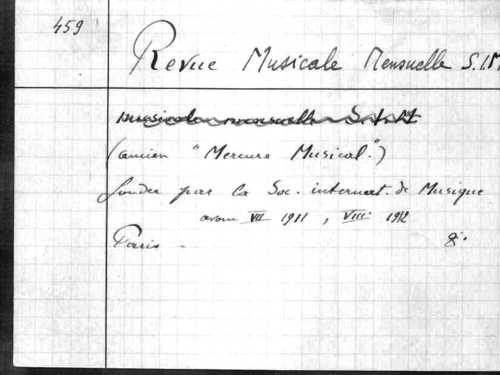 459
Revue Musicale Mensuelle S.IM
musicale mensuelle S.I.M
(ancien "Mercure Musical")
fondée par la Soc. internat. de Musique
VII 1911, VIII 1912
Paris - 8°